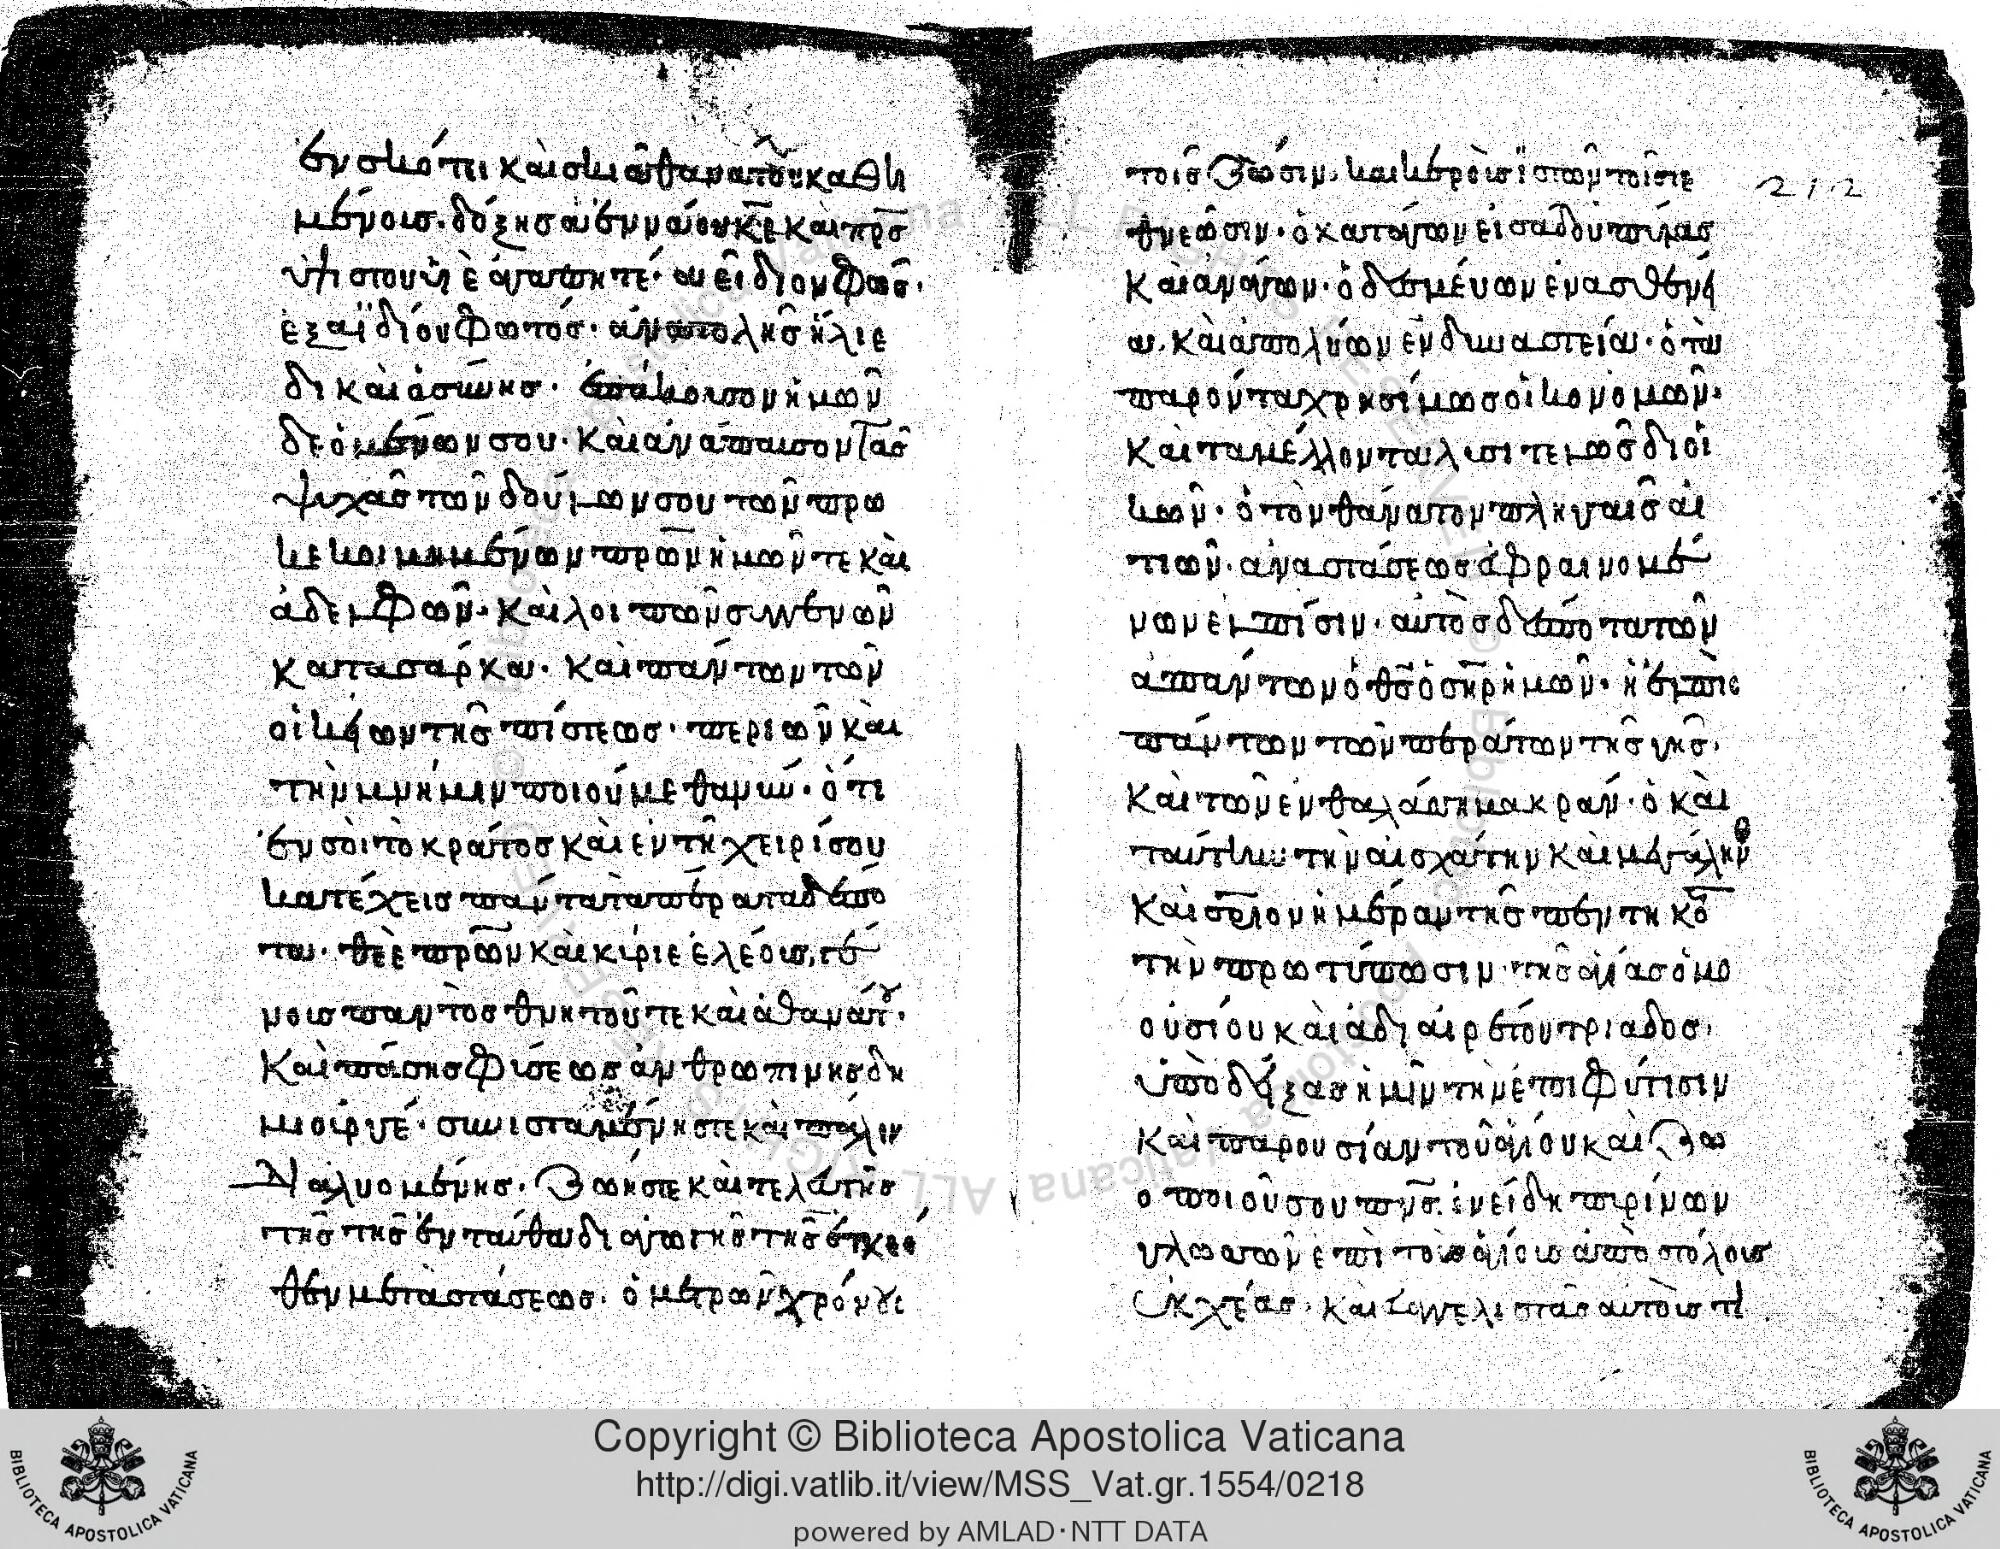 ἐν σκότει καὶ σκιᾶ θανάτου καθη
μένοις. δόξης ἀένναου κε καὶ πρσ
ὑψίστου υἱὲ ἀγαπητέ. ἀείδιον φῶς.
ἐξ αϊδίου φωτός. ἀνατολῆς ἥλιε
δικαιάσύνης. ἐπάκουσον ἡμῶν
δεομένων σου. καὶ ἀνάπαυσον τὰσ
ψυχὰς τῶν δούλων σου τῶν προ
κεκοιμημένων πρων ἡμῶν τε καὶ
ἀδελφῶν. καὶ λοιπῶν συγγενῶν
κατα σάρκα. καὶ πάντων τῶν
οἰκείων τῆς πίστεως. περὶ ὧν καὶ
τὴν μνήμην ποιούμεθα νῦν. ὅτι
ἐν σοὶ τὸ κράτος καὶ ἐν τῆ χειρί σου
κατέχεις πάντα τὰ πέρατα δέσπο
τα. θεὲ πρων καὶ κύριε ἐλέους, γέ
νους παντὸς θνητοῦ τε καὶ ἀθανάτου.
καὶ πάσης φύσεως ἀνθρωπίνης δη
μιουργέ. συνισταμένης τε καὶ πάλιν
ἀναλυομένης. ζωῆς τε καὶ τελευτῆς
τῆς τῆς ἐνταῦθα διαγωγῆς τῆς ἐκεῖ
θεν μεταστάσεως. ὁ μετρῶν χρόνους
τοῖς ζῶσιν. καὶ καιροὺς ϊστῶν τοῖς τε
θνεῶσιν. ὁ κατάγων εἰς ἅδου πύλας
καὶ ἀνάγων. ὁ δεσμεύων ἐν ασθενεί
α. καὶ ἀπολύων ἐν δυναστεία. ὁ τὰ
παρόντα χρησίμως οἰκονομῶν.
καὶ τα μέλλοντα λυσιτελῶς διοι
κῶν. ὁ τὸν θάνατον πληγαῖς αἰ
τιῶν. αναστάσεως ἀφραινομέ
νων ἐλπίσιν. αὐτὸς δέσποτα τῶν
ἀπάντων ὁ θσ ὁ σηρ ἡμῶν. ἡ ἐλπὶς
πάντων τῶν περάτων τῆς γῆς.
καὶ τῶν ἐν θαλάσση μακράν. ὁ καὶ
ταύτην τὴν αἰσχάτην καὶ μεγάλην
καὶ σρλον ἡμέραν τῆς πεντηκο
τὴν πρωτύπωσιν τῆς ἁγίας ὁμο
ουσίου καὶ ἀδιαιρέτου τριαδος.
ὑποδείξας ἡμῖν τὴν ἐπιφύτισιν
καὶ παρουσίαν τοῦ ἁγίου καὶ ζω
οποιοῦ σου πνσ. ἐν εἴδη πυρίνων
γλωσσῶν ἐπὶ τοὺς ἁγίους ἀποστόλους
ἐκχέας. καὶ εὐαγγελιστὰς αὐτοὺς τῆ
212
Copyright © Biblioteca Apostolica Vaticana
http://digi.vatlib.it/view/MSS_Vat.gr.1554/0218
powered by AMLAD·NTT DATA
BIBLIOTECA APOSTOLICA VATICANA
BIBLIOTECA APOSTOLICA VATICANA